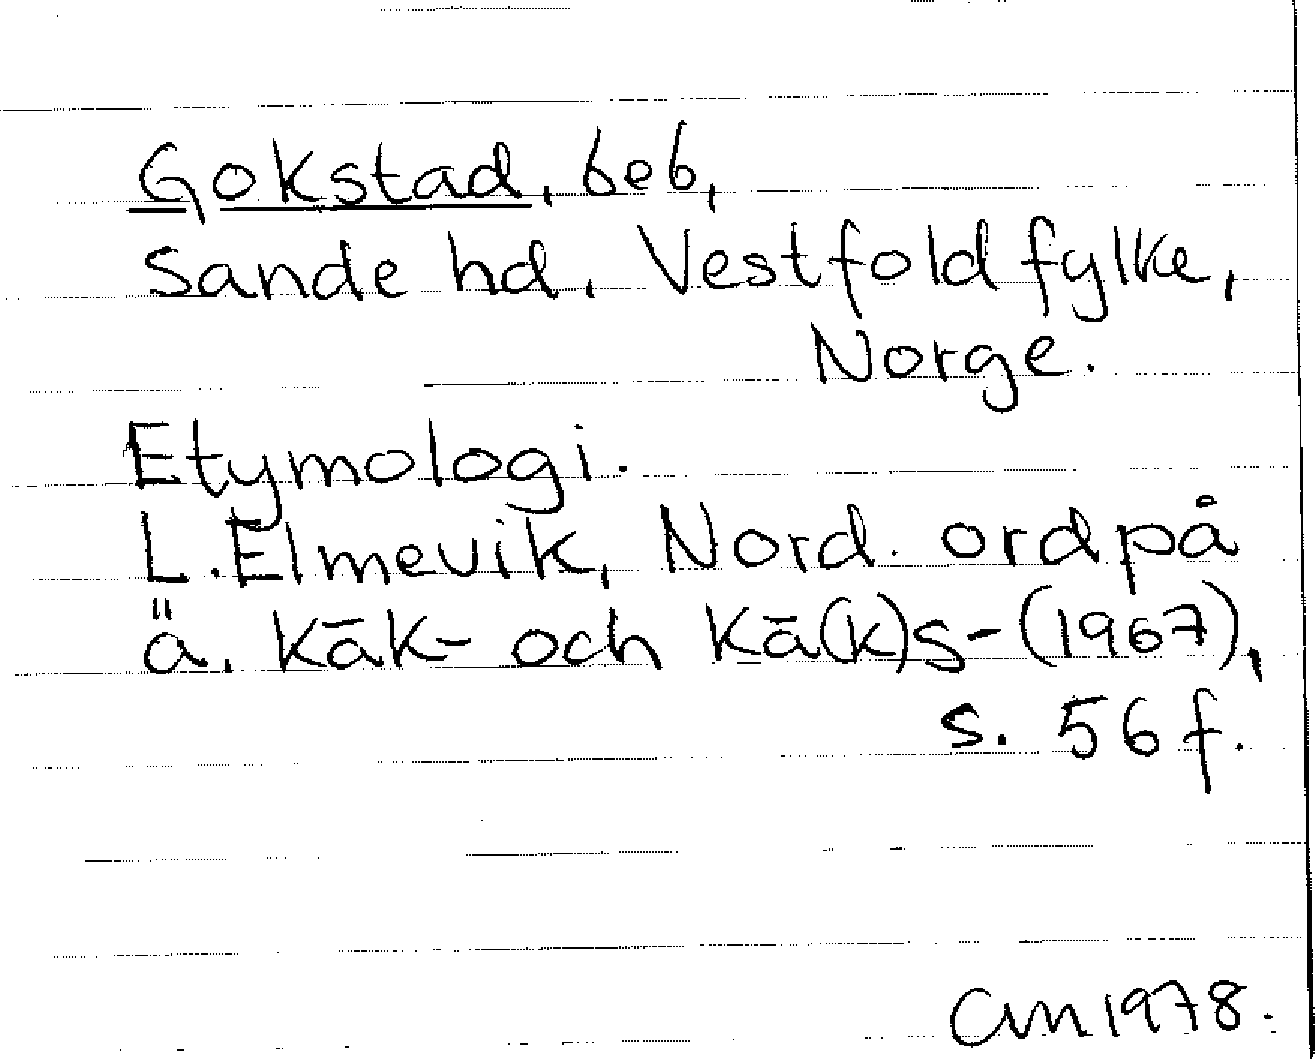 Gokstad, beb,
Sande hd, Vestfold fylke,
Norge.
Etymologi.
L. Elmevik, Nord. ord på
ä. kāk- och kā(k)s- (1967),
s. 56 f.
CM 1978.